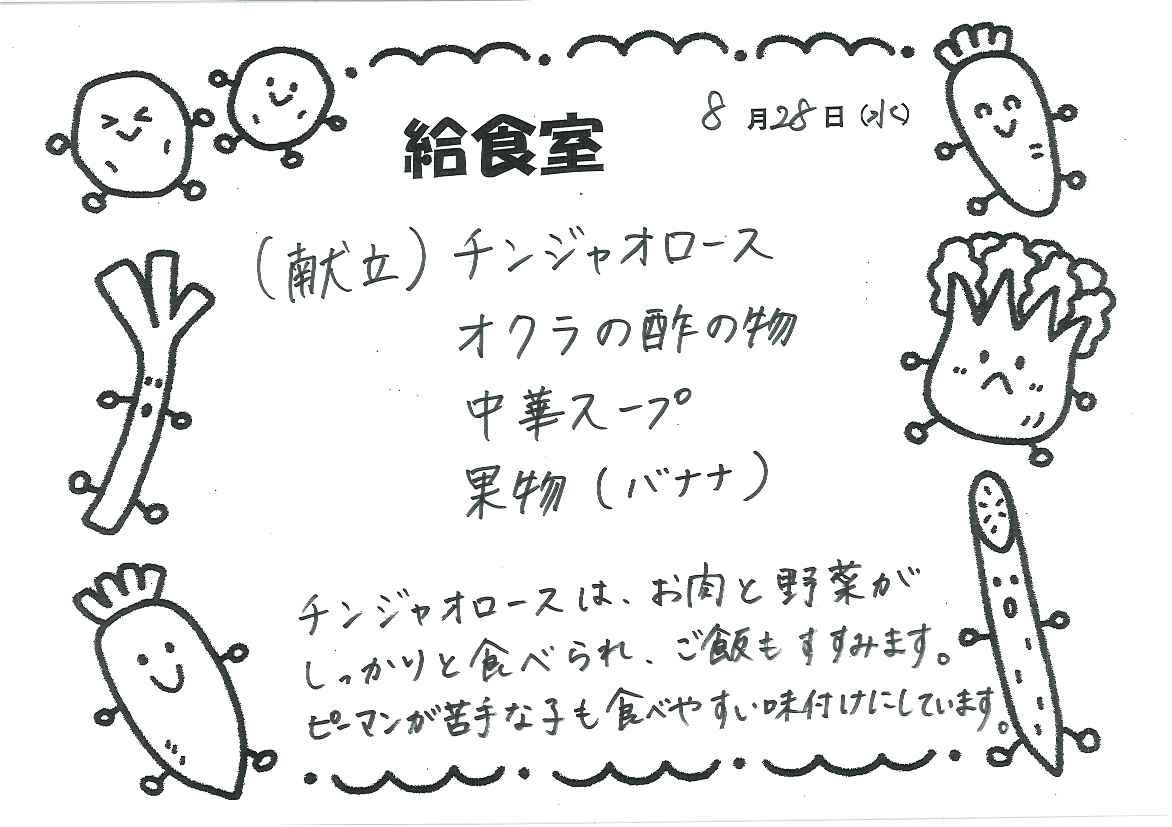 給食室
8月28日(水)
(献立)チンジャオロース
オクラの酢の物
中華スープ
果物(バナナ)
チンジャオロースは、お肉と野菜が
しっかりと食べられ、ご飯もすすみます。
ピーマンが苦手な子も食べやすい味付けにしています。